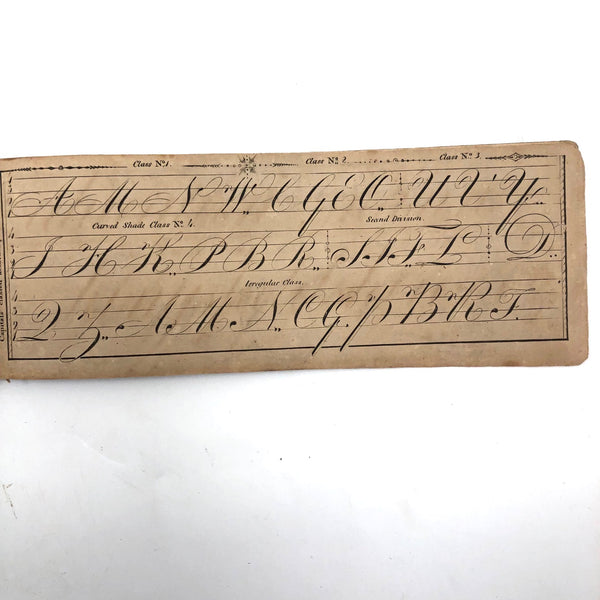 Class Nº 1. Class Nº 2. Class Nº 3.
A M N W C G E O U V Y
Curved Shade Class Nº 4. Second Division.
I H K P B R S T F L D
Irregular Class.
Q Z A M N C G P B R T
Capitals